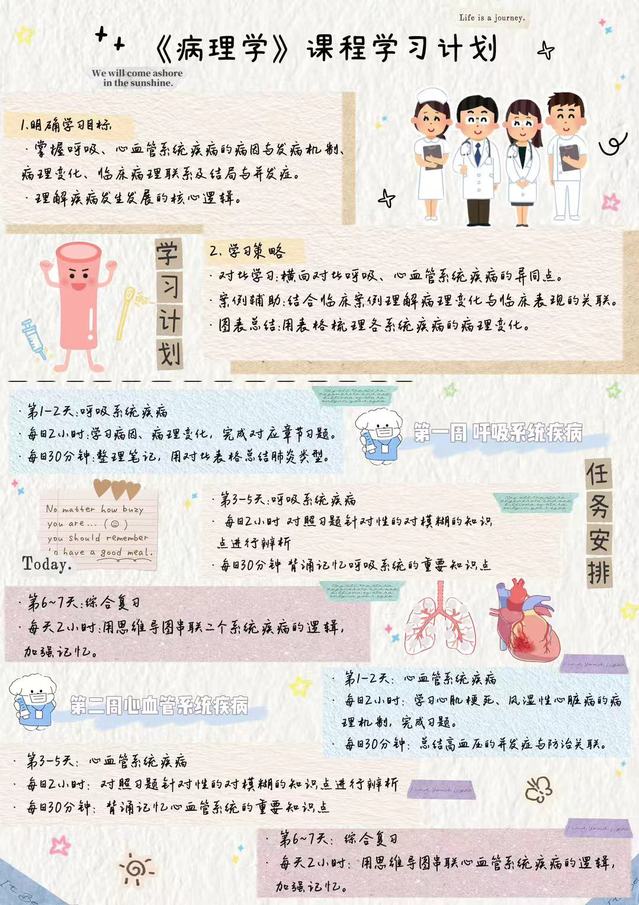 Life is a journey.
《病理学》课程学习计划
We will come ashore
in the sunshine.
1.明确学习目标
·掌握呼吸、心血管系统疾病的病因与发病机制、
病理变化、临床病理联系及结局与并发症。
·理解疾病发生发展的核心逻辑。
学习计划
2. 学习策略
·对比学习:横向对比呼吸、心血管系统疾病的异同点。
·案例辅助:结合临床案例理解病理变化与临床表现的关联。
·图表总结:用表格梳理各系统疾病的病理变化。
第一周 呼吸系统疾病
·第1-2天:呼吸系统疾病
·每日2小时:学习病因、病理变化，完成对应章节习题。
·每日30分钟:整理笔记，用对比表格总结肺炎类型。
任务安排
No matter how busy
you are...
you should remember
to have a good meal.
Today.
·第3-5天:呼吸系统疾病
·每日2小时 对照习题针对性的对模糊的知识
点进行辨析
·每日30分钟 背诵记忆呼吸系统的重要知识点
·第6~7天:综合复习
·每天2小时:用思维导图串联二个系统疾病的逻辑，
加强记忆。
第二周心血管系统疾病
·第1-2天: 心血管系统疾病
·每日2小时: 学习心肌梗死、风湿性心脏病的病
理机制，完成习题。
·每日30分钟: 总结高血压的并发症与防治关联。
·第3-5天: 心血管系统疾病
·每日2小时: 对照习题针对性的对模糊的知识点进行辨析
·每日30分钟: 背诵记忆心血管系统的重要知识点
·第6~7天: 综合复习
·每天2小时: 用思维导图串联心血管系统疾病的逻辑，
加强记忆。